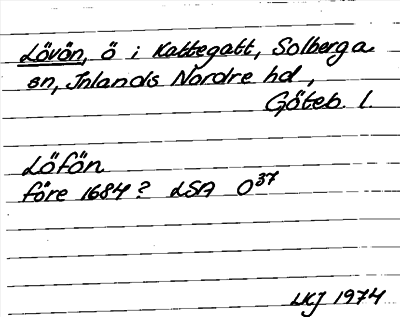 Lövön, ö i Kattegatt, Solberga
sn, Inlands Nordre hd,
Göteb. l.
Löfön
före 1684? LSA O37
LKJ 1974